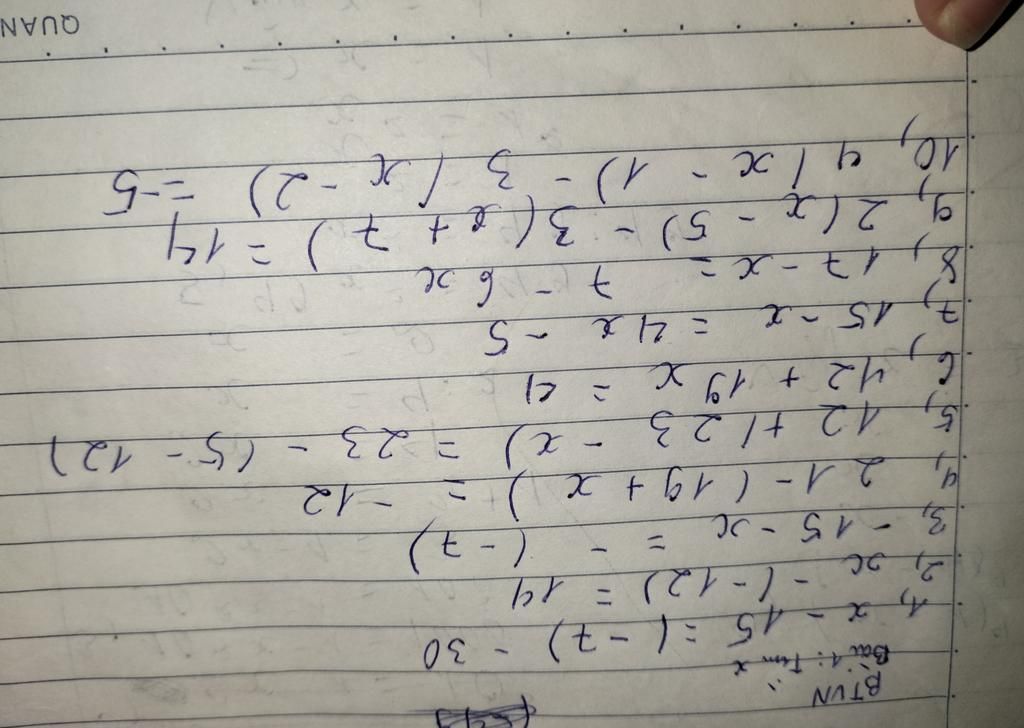 BTVN
Bài 1: Tìm x
1, x - 15 = (-7) - 30
2, x - (-12) = 14
3, -15 - x = - (-7)
4, 21 - (19 + x) = -12
5, 12 + (23 - x) = 23 - (5 - 12)
6, 42 + 19x = 4
7, 15 - x = 4x - 5
8, 17 - x = 7 - 6x
9, 2(x - 5) - 3(x + 7) = 14
10, 4(x - 1) - 3(x - 2) = -5
QUAN